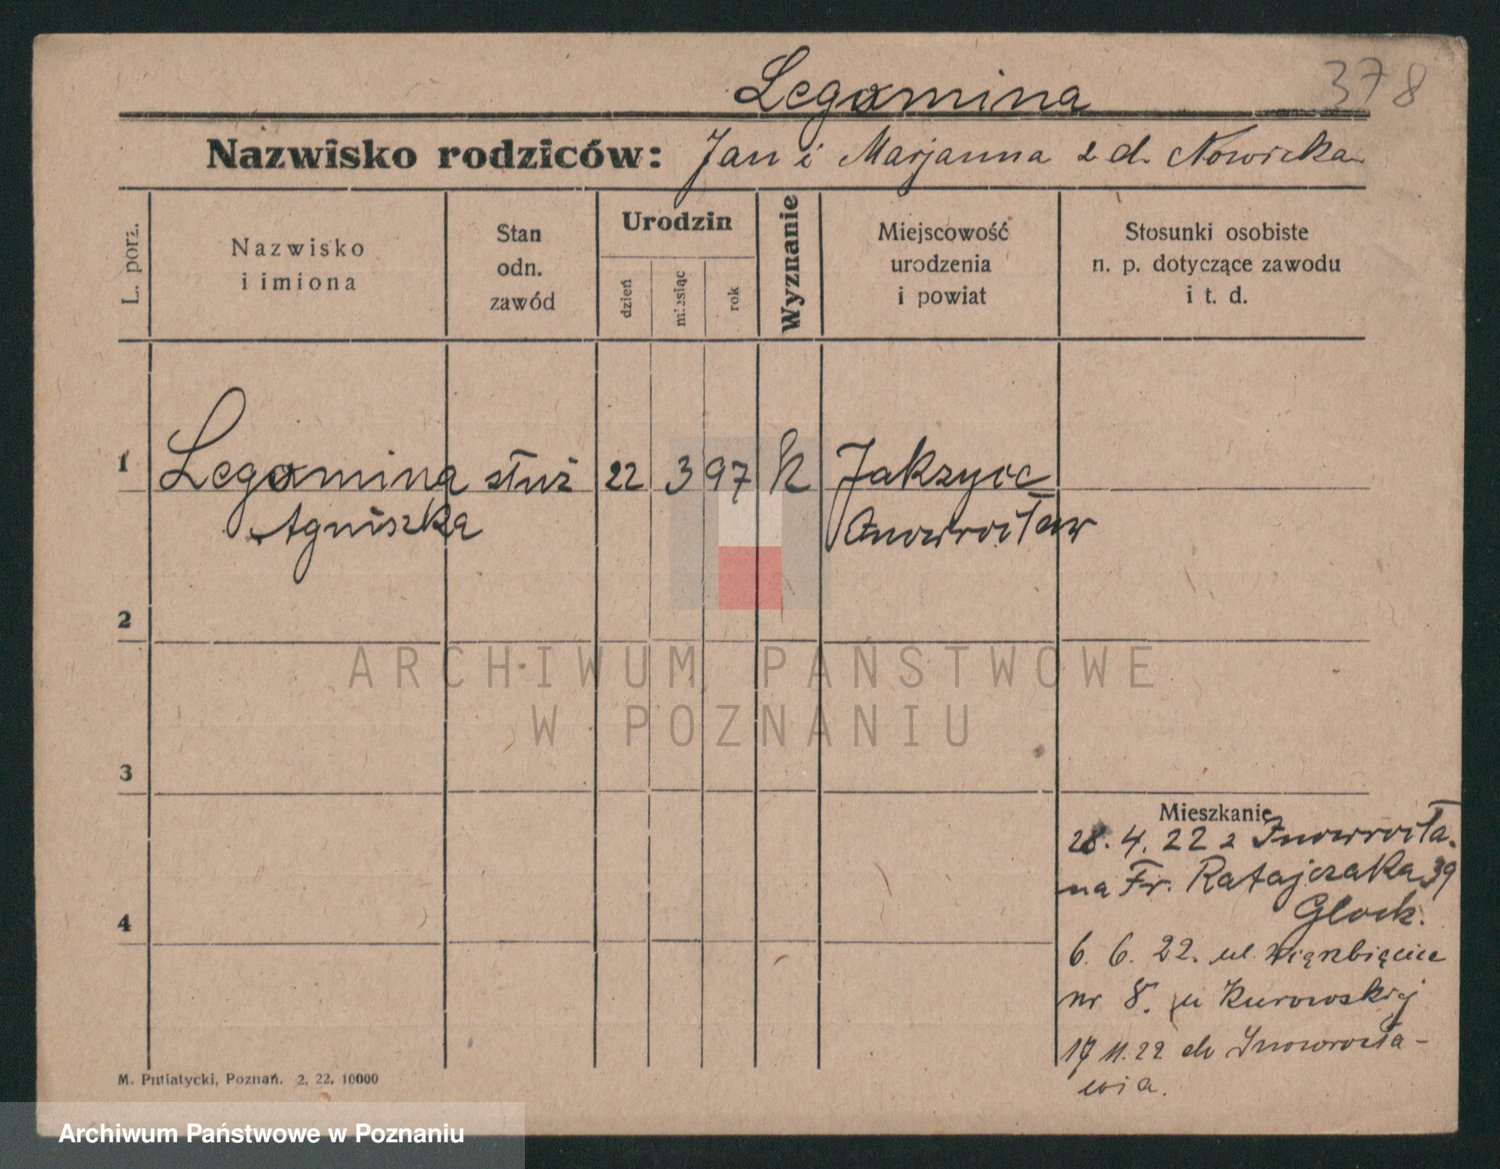 Legomina 378
Nazwisko rodziców: Jan i Marjanna z d. Nowicka
L. porz.
Nazwisko
i imiona
Stan
odn.
zawód
Urodzin
dzień
miesiąc
rok
Wyznanie
Miejscowość
urodzenia
i powiat
Stosunki osobiste
n. p. dotyczące zawodu
i t. d.
1 Legomina służ 22 3 97 k Jakszyce
Agniszka Inowrocław
2
ARCHIWUM PAŃSTWOWE
W POZNANIU
3
Mieszkanie
28. 4. 22 z Inowrocła.
na Fr. Ratajczaka 39
Glock.
4
6. 6. 22. ul. Wierzbięcice
nr 8. u Kurowskiej
17 11. 22 do Inowrocła-
wia.
M. Putiatycki, Poznań. 2. 22. 10000
Archiwum Państwowe w Poznaniu